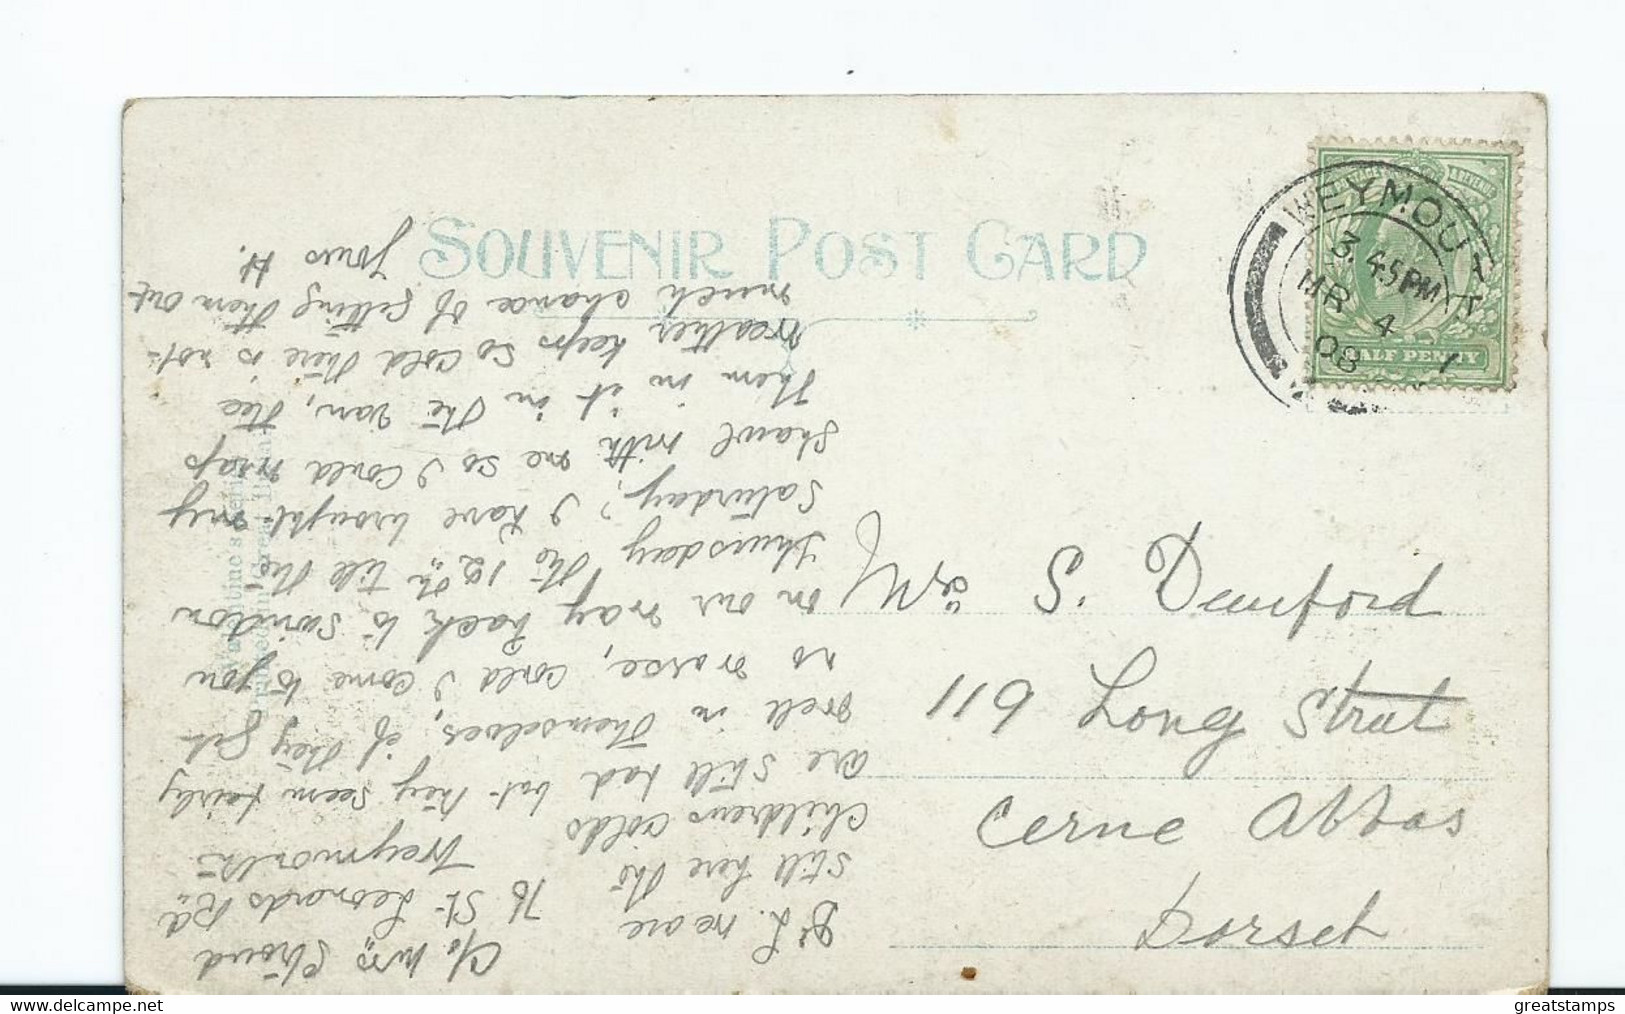 SOUVENIR POST CARD
WEYMOUT
3.45PM
MR 4
08
HALF PENNY
Mrs S. Dunford
119 Long Street
Cerne Abbas
Dorset
C/o Mrs Stroud
76 St Leonards Rd
Weymouth
D. L. we are
still here the
childrens colds
are still bad but they seem fairly
well in themselves, if they get
no worse, could I come to you
on our way back to Swindon
Thursday the 12th till the
Saturday? I have brought my
shawl with me so I could wrap
them in it in the van, the
weather keeps so cold there is not
much chance of getting them out
yours H.
greatstamps